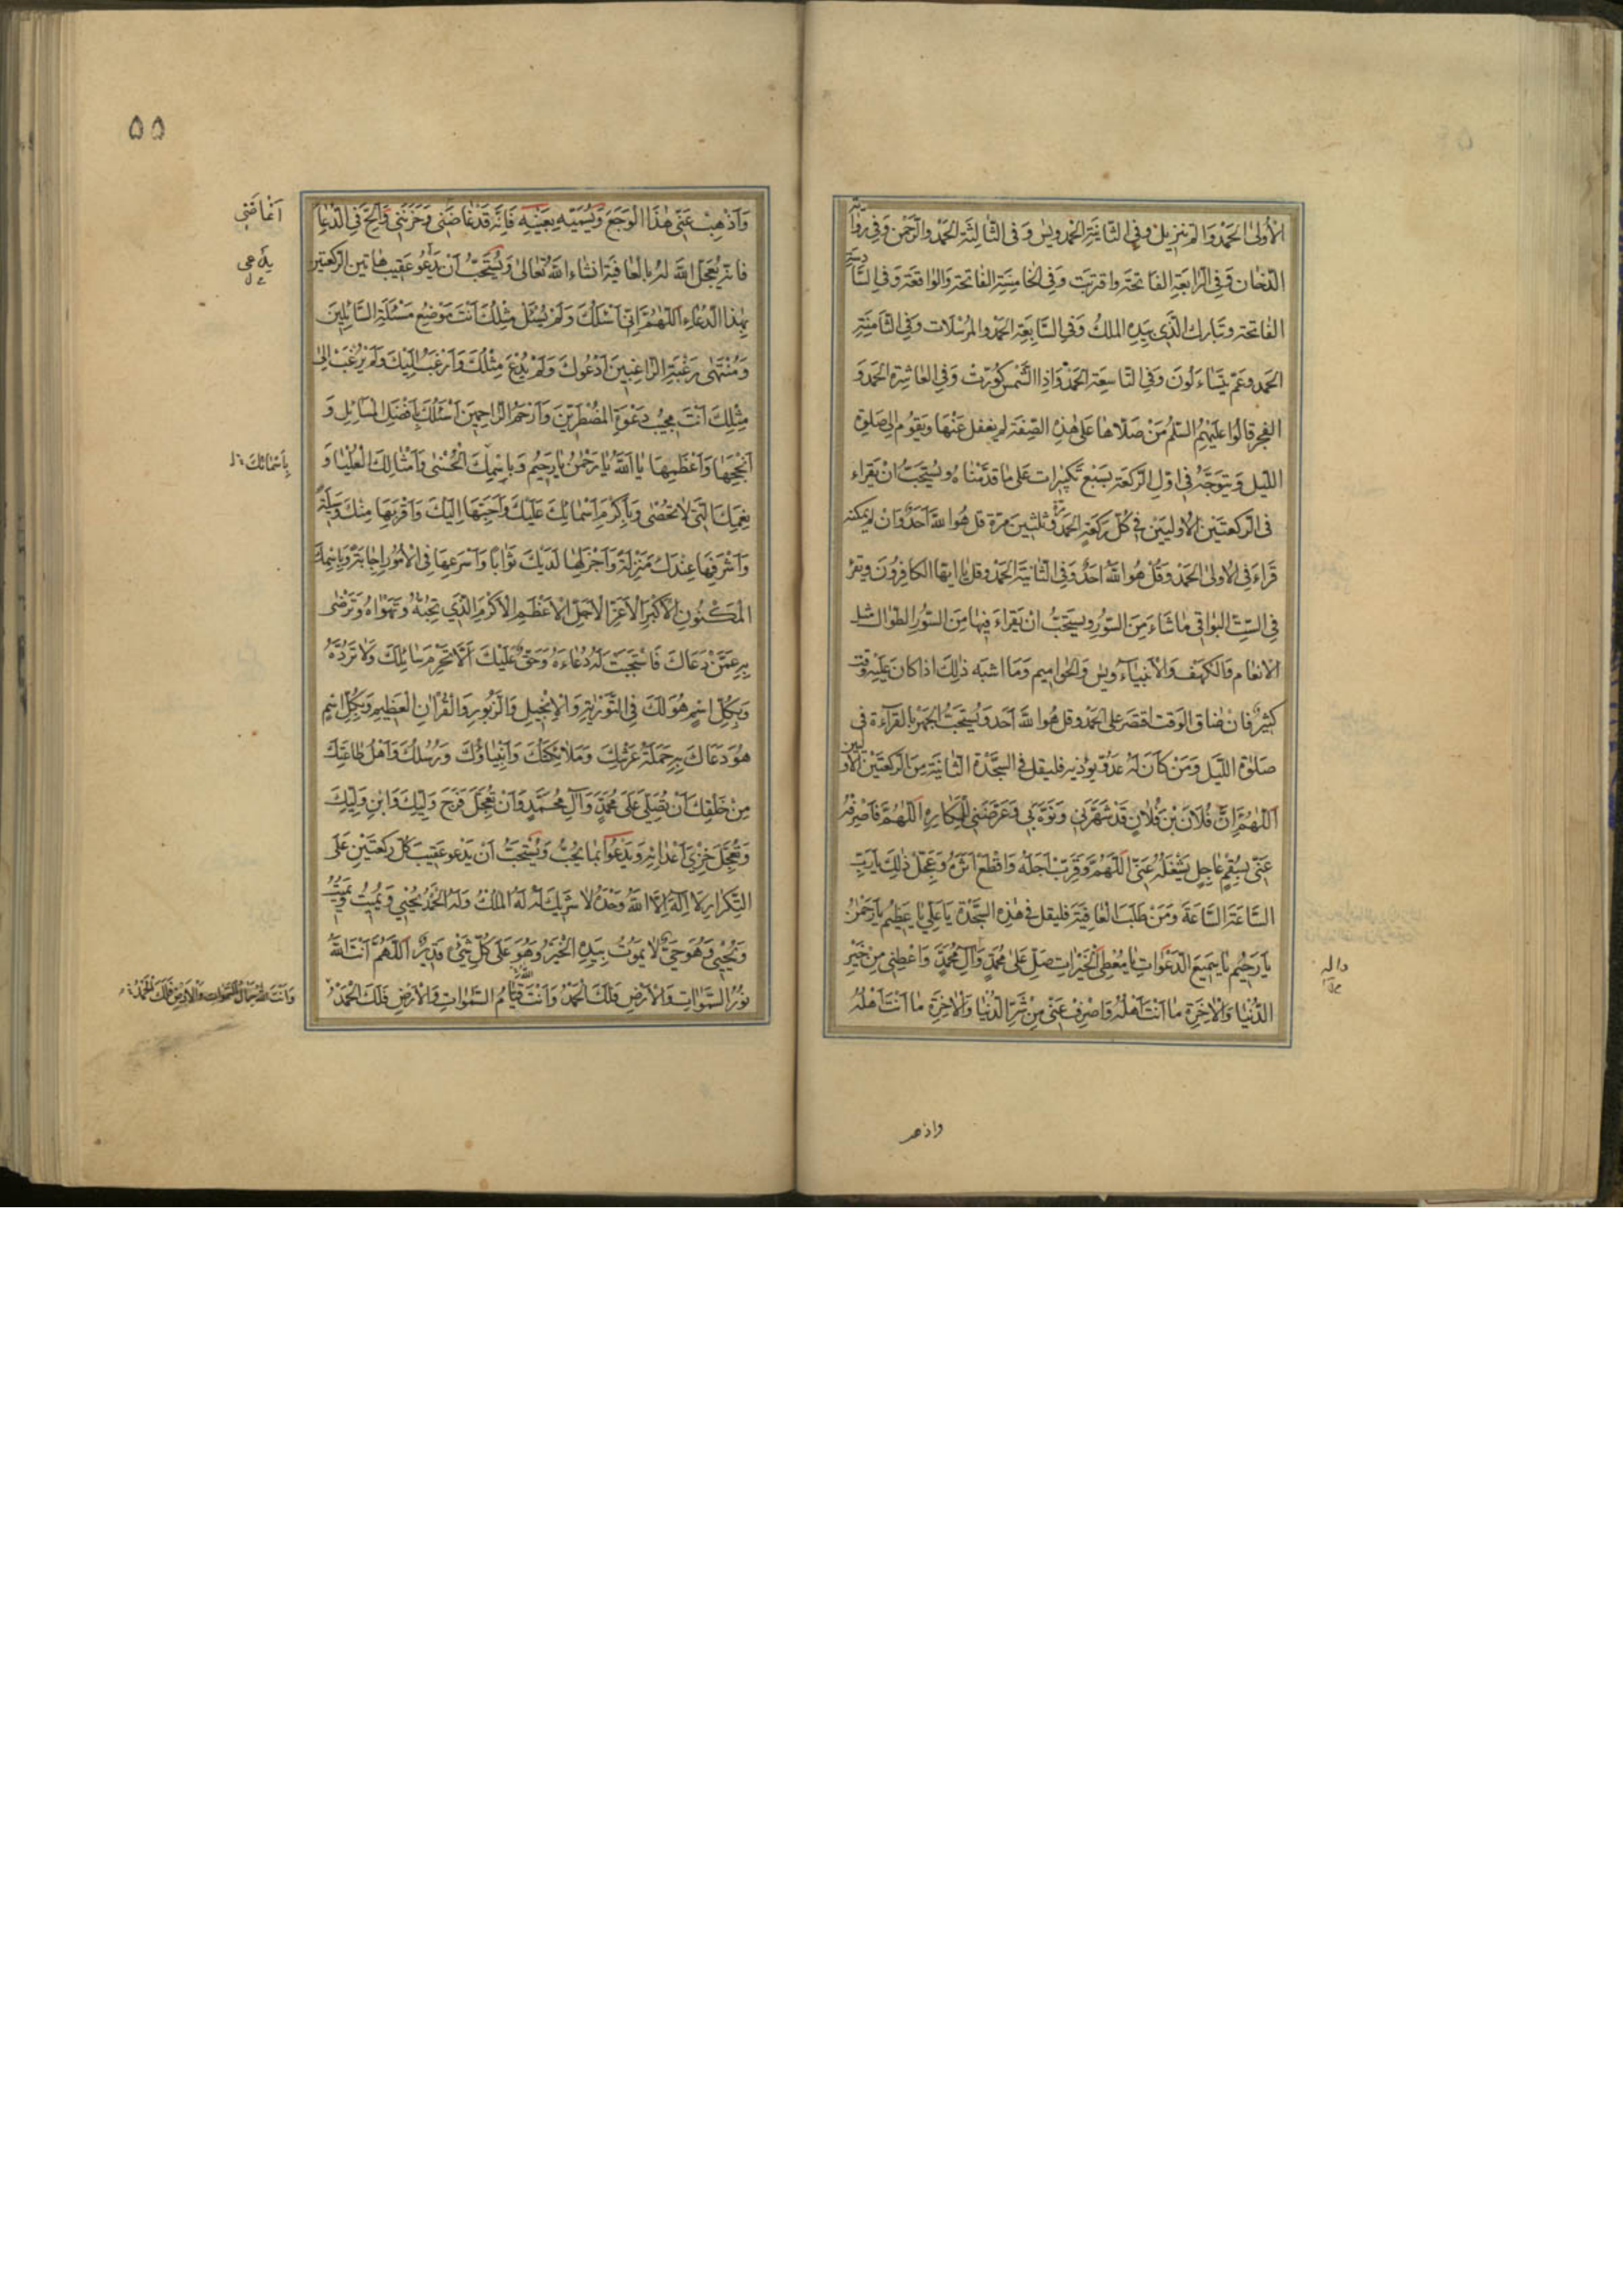 الْأُولَى الْحَمْدَ وَالم تنزيل وَفِي الثّانِيَةِ الْحَمْد ويس وَفِي الثَّالِثَةِ الْحَمْدَ وَالرَّحْمٰن وَفِي رواية
الدّخان وَفِي الرّابِعَةِ الفاتحَةَ واقتربت وَفِي الخامِسَةِ الفاتحة وَالواقعَة وَفي السّادسة
الفاتحة وتبارك الَّذي بِيَدِهِ الملكُ وَفي السَّابِعَةِ الحَمْدَ والمُرْسَلات وَفي الثّامِنَةِ
الحَمد وعَمَّ يَتَسَاءَلُونَ وَفي التّاسِعَةِ الحَمْدَ وَاِذَا الشَّمْس كُوِّرَتْ وَفِي العاشِرةِ الحَمْدَ وَ
الفجر قالُوا عَلَيْهِمُ السّلمُ مَنْ صَلّاها عَلى هٰذِهِ الصِّفَة لم يغفل عَنْهَا ويَقُوم الى صَلوة
اللّيل وَيتوجّهُ في اوّلِ الرَّكعَة بسَبْع تكبيرات عَلى مَا قدّمْناهُ ويُستَحَبُّ انْ يَقراء
فى الرّكعتَيْن الاوليَيْن فِى كُلّ رَكعَةٍ الحَمْدَ مرّة وثلثينَ مرّة قل هُوَ اللّٰهُ اَحَدٌ وَان لم يمكنه
قَرَاءَ فِي الاولى الحَمْدَ وَقُلْ هُوَ اللّٰهُ اَحَدٌ وَفي الثانيَةِ الحَمْدَ وقل يا ايّها الكافِرُونَ ويَقرَ
فِى السِّتِّ البَواقي مَا شَاءَ مِنَ السُّوَر ويستَحَبُّ انْ يَقراءَ فِيها مِنَ السُّوَرِ الطوالِ مثل
الانعام وَالكَهَف وَالأنبيَاءِ ويس وَالحَواميم وَمَا اشبَه ذٰلِكَ اذا كانَ عَلَيْهِ وقت
كثيرٌ فان ضاق الوَقت اقتصَرَ عَلى الحَمْد وقل هُوَ اللّٰهُ اَحَد وَيُستَحَبُّ الجهرُ بالقرآءة فى
صَلوٰة اللّيَل وَمَنْ كَانَ لَهُ عَدُوّ يؤذيهِ فليقل في السجَّدْة الثانيَة مِنَ الرّكعَتَيْن الأوليين
اَللّٰهُمَّ اِنَّ فُلَانَ بْنَ فُلَانٍ قَدْ شَهَرَنِي وَنَوَّهَ بِي وَعَرَّضَنِي لِلْمَكَارِهِ اَللّٰهُمَّ فَاصْرِفْهُ
عَنّي بِسُقْمٍ عَاجِلٍ يَشْغَلُهُ عَنّي اَللّٰهُمَّ وَقَرِّبْ اَجَلَهُ وَاقْطَعْ اَثَرَهُ وَعَجِّلْ ذٰلِكَ يَا رَبِّ
السَّاعَةَ السَّاعَةَ وَمَنْ طَلَبَ العَافِيَةَ فليقل في هٰذِهِ السَّجْدَةِ يَا عَلِيُّ يَا عَظِيمُ يَا رَحْمٰنُ
يَا رَحِيمُ يَا سَمِيعَ الدَّعَوَاتِ يَا مُعْطِيَ الْخَيْرَاتِ صَلِّ عَلٰى مُحَمَّدٍ وَآلِ مُحَمَّدٍ وَاَعْطِنِي مِنْ خَيْرِ
الدُّنْيَا وَالْآخِرَةِ مَا اَنْتَ اَهْلُهُ وَاصْرِفْ عَنّي مِنْ شَرِّ الدُّنْيَا وَالْآخِرَةِ مَا اَنْتَ اَهْلُهُ
وآله
واذهب
٥٥
وَاَذْهِبْ عَنّي هٰذَا الْوَجَعَ وَيُسَمّيهِ بِعَيْنِهِ فَاِنَّهُ قَدْ غَاضَنِي وَحَزَنَنِي وَالِحّ فِي الدُّعَاءِ
فانه يُعَجِّلُ اللّٰهُ لَهُ بالعافيَة انشاء اللّٰه تعالى وَيُستَحَبُّ اَنْ يَدْعُو عَقِيبَ هاتين الرّكعتين
بِهٰذا الدُّعاءِ اَللّٰهُمَّ اِنّي اَسْئَلُكَ وَلَمْ يُسْئَلْ مِثْلُكَ اَنْتَ مَوْضِعُ مَسْئَلَةِ السَّائِلِينَ
وَمُنْتَهٰى رَغْبَةِ الرَّاغِبِينَ اَدْعُوكَ وَلَمْ يُدْعَ مِثْلُكَ وَاَرْغَبُ اِلَيْكَ وَلَمْ يُرْغَبْ اِلٰى
مِثْلِكَ اَنْتَ مُجِيبُ دَعْوَةِ الْمُضْطَرِّينَ وَاَرْحَمُ الرَّاحِمِينَ اَسْئَلُكَ بِاَفْضَلِ الْمَسَائِلِ وَ
اَنْجَحِهَا وَاَعْظَمِهَا يَا اَللّٰهُ يَا رَحْمٰنُ يَا رَحِيمُ وَبِاسْمِكَ الْحُسْنٰى وَاَمْثَالِكَ الْعُلْيَا وَ
نِعَمِكَ الَّتِي لَا تُحْصٰى وَبِاَكْرَمِ اَسْمَائِكَ عَلَيْكَ وَاَحَبِّهَا اِلَيْكَ وَاَقْرَبِهَا مِنْكَ وَسِيلَةً
وَاَشْرَفِهَا عِنْدَكَ مَنْزِلَةً وَاَجْزَلِهَا لَدَيْكَ ثَوَابًا وَاَسْرَعِهَا فِي الْأُمُورِ اِجَابَةً وَبِاسْمِكَ
الْمَكْنُونِ الْأَكْبَرِ الْأَعَزِّ الْأَجَلِّ الْأَعْظَمِ الْأَكْرَمِ الَّذِي تُحِبُّهُ وَتَهْوَاهُ وَتَرْضٰى
بِهِ عَمَّنْ دَعَاكَ فَاسْتَجَبْتَ لَهُ دُعَاءَهُ وَحَقٌّ عَلَيْكَ اَلَّا تَحْرِمَ سَائِلَكَ وَلَا تَرُدَّهُ
وَبِكُلِّ اسْمٍ هُوَ لَكَ فِي التَّوْرٰيةِ وَالْإِنْجِيلِ وَالزَّبُورِ وَالْقُرْآنِ الْعَظِيمِ وَبِكُلِّ اسْمٍ
هُوَ دَعَاكَ بِهِ حَمَلَةُ عَرْشِكَ وَمَلَائِكَتُكَ وَاَنْبِيَاؤُكَ وَرُسُلُكَ وَاَهْلُ طَاعَتِكَ
مِنْ خَلْقِكَ اَنْ تُصَلِّيَ عَلٰى مُحَمَّدٍ وَآلِ مُحَمَّدٍ وَاَنْ تُعَجِّلَ فَرَجَ وَلِيِّكَ وَابْنِ وَلِيِّكَ
وَتُعَجِّلَ خِزْيَ اَعْدَائِهِ وَيَدْعُوا بما يُحِبُّ وَيُسْتَحَبُّ اَنْ يَدْعو عَقيبَ كلّ ركعَتَيْنِ عَلَى
التَّكْرَارِ لَا اِلٰهَ اِلَّا اللّٰهُ وَحْدَهُ لَا شَرِيكَ لَهُ لَهُ الْمُلْكُ وَلَهُ الْحَمْدُ يُحْيِي وَيُمِيتُ وَيُمِيتُ
وَيُحْيِي وَهُوَ حَيٌّ لَا يَمُوتُ بِيَدِهِ الْخَيْرُ وَهُوَ عَلٰى كُلِّ شَيْءٍ قَدِيرٌ اَللّٰهُمَّ اَنْتَ اللّٰهُ
نُورُ السَّمٰوَاتِ وَالْأَرْضِ فَلَكَ الْحَمْدُ وَاَنْتَ اللّٰه قَيَّامُ السَّمٰوَاتِ وَالْأَرْضِ فَلَكَ الْحَمْدُ
بِاَسْمَائِكَ
وَاَنْتَ اللّٰهُ جَمَالُ السَّمٰوَاتِ وَالْأَرْضِ فَلَكَ الْحَمْدُ